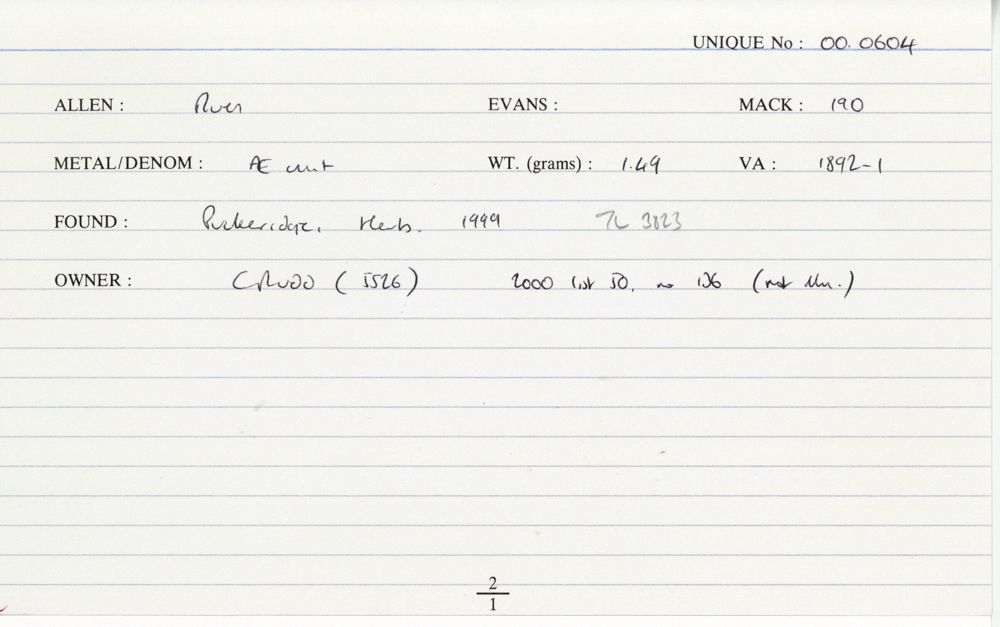 UNIQUE No : 00. 0604
ALLEN : Rues EVANS : MACK : 190
METAL/DENOM : Æ unit WT. (grams) : 1.49 VA : 1892-1
FOUND : Puckeridge, Herts. 1999 TL 3823
OWNER : CRudd (5526) 2000 list 50, no 136 (not illn.)
2
1